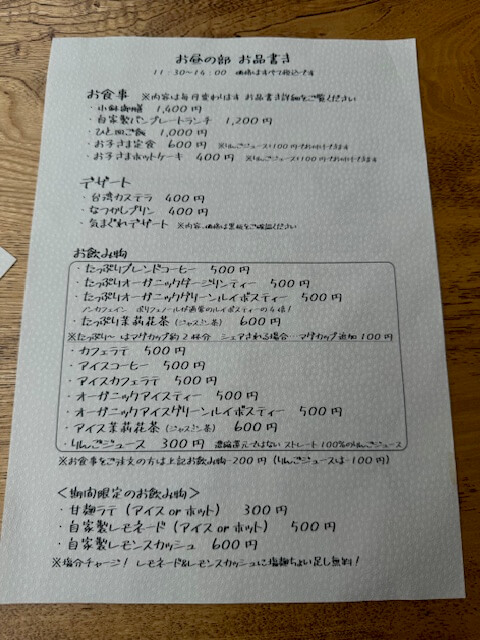 お昼の部 お品書き
11：30〜14：00 価格はすべて税込です
お食事 ※内容は毎月変わります お品書き詳細をご覧ください
・小鉢御膳 1,400円
・自家製パンプレートランチ 1,200円
・ひと皿ご飯 1,000円
・お子さま定食 600円 ※りんごジュースは100円でお付けできます
・お子さまホットケーキ 400円 ※りんごジュースは100円でお付けできます
デザート
・台湾カステラ 400円
・なつかしプリン 400円
・気まぐれデザート ※内容、価格は黒板をご確認ください
お飲み物
・たっぷりブレンドコーヒー 500円
・たっぷりオーガニックダージリンティー 500円
・たっぷりオーガニックグリーンルイボスティー 500円
ノンカフェイン ポリフェノールが通常のルイボスティーの4倍！
・たっぷり茉莉花茶（ジャスミン茶） 600円
※たっぷり〜はマグカップ約2杯分 シェアされる場合…マグカップ追加100円
・カフェラテ 500円
・アイスコーヒー 500円
・アイスカフェラテ 500円
・オーガニックアイスティー 500円
・オーガニックアイスグリーンルイボスティー 500円
・アイス茉莉花茶（ジャスミン茶） 600円
・りんごジュース 300円 濃縮還元ではない ストレート100%のりんごジュース
※お食事をご注文の方は上記お飲み物-200円（りんごジュースは-100円）
＜期間限定のお飲み物＞
・甘麹ラテ（アイス or ホット） 300円
・自家製レモネード（アイス or ホット） 500円
・自家製レモンスカッシュ 600円
※塩分チャージ！ レモネード&レモンスカッシュに塩麹ちょい足し無料！